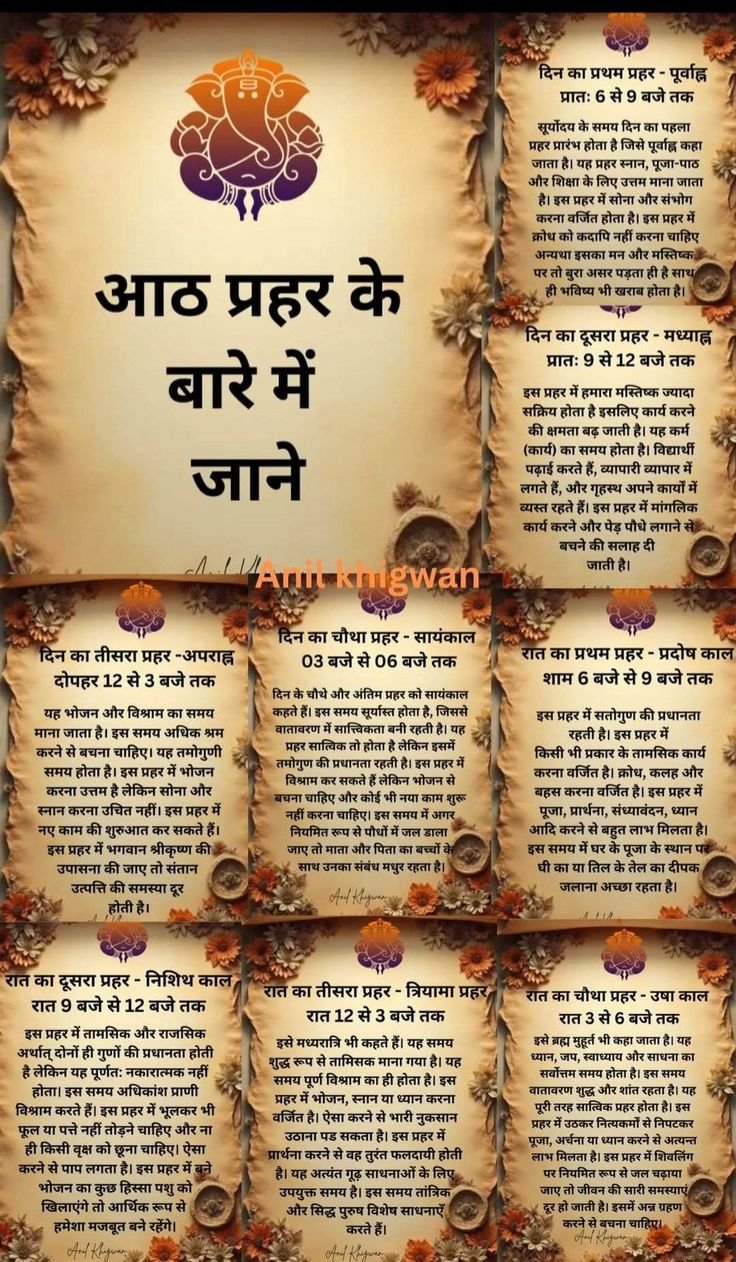 आठ प्रहर के
बारे में
जाने
Anil khigwan
दिन का प्रथम प्रहर - पूर्वाह्न
प्रातः 6 से 9 बजे तक
सूर्योदय के समय दिन का पहला
प्रहर प्रारंभ होता है जिसे पूर्वाह्न कहा
जाता है। यह प्रहर स्नान, पूजा-पाठ
और शिक्षा के लिए उत्तम माना जाता
है। इस प्रहर में सोना और संभोग
करना वर्जित होता है। इस प्रहर में
क्रोध को कदापि नहीं करना चाहिए
अन्यथा इसका मन और मस्तिष्क
पर तो बुरा असर पड़ता ही है साथ
ही भविष्य भी खराब होता है।
दिन का दूसरा प्रहर - मध्याह्न
प्रातः 9 से 12 बजे तक
इस प्रहर में हमारा मस्तिष्क ज्यादा
सक्रिय होता है इसलिए कार्य करने
की क्षमता बढ़ जाती है। यह कर्म
(कार्य) का समय होता है। विद्यार्थी
पढ़ाई करते हैं, व्यापारी व्यापार में
लगते हैं, और गृहस्थ अपने कार्यों में
व्यस्त रहते हैं। इस प्रहर में मांगलिक
कार्य करने और पेड़ पौधे लगाने से
बचने की सलाह दी
जाती है।
दिन का तीसरा प्रहर -अपराह्न
दोपहर 12 से 3 बजे तक
यह भोजन और विश्राम का समय
माना जाता है। इस समय अधिक श्रम
करने से बचना चाहिए। यह तमोगुणी
समय होता है। इस प्रहर में भोजन
करना उत्तम है लेकिन सोना और
स्नान करना उचित नहीं। इस प्रहर में
नए काम की शुरुआत कर सकते हैं।
इस प्रहर में भगवान श्रीकृष्ण की
उपासना की जाए तो संतान
उत्पत्ति की समस्या दूर
होती है।
दिन का चौथा प्रहर - सायंकाल
03 बजे से 06 बजे तक
दिन के चौथे और अंतिम प्रहर को सायंकाल
कहते हैं। इस समय सूर्यास्त होता है, जिससे
वातावरण में सात्त्विकता बनी रहती है। यह
प्रहर सात्विक तो होता है लेकिन इसमें
तमोगुण की प्रधानता रहती है। इस प्रहर में
विश्राम कर सकते हैं लेकिन भोजन से
बचना चाहिए और कोई भी नया काम शुरू
नहीं करना चाहिए। इस समय में अगर
नियमित रूप से पौधों में जल डाला
जाए तो माता और पिता का बच्चों के
साथ उनका संबंध मधुर रहता है।
Anil Khigwan
रात का प्रथम प्रहर - प्रदोष काल
शाम 6 बजे से 9 बजे तक
इस प्रहर में सतोगुण की प्रधानता
रहती है। इस प्रहर में
किसी भी प्रकार के तामसिक कार्य
करना वर्जित है। क्रोध, कलह और
बहस करना वर्जित है। इस प्रहर में
पूजा, प्रार्थना, संध्यावंदन, ध्यान
आदि करने से बहुत लाभ मिलता है।
इस समय में घर के पूजा के स्थान पर
घी का या तिल के तेल का दीपक
जलाना अच्छा रहता है।
रात का दूसरा प्रहर - निशिथ काल
रात 9 बजे से 12 बजे तक
इस प्रहर में तामसिक और राजसिक
अर्थात् दोनों ही गुणों की प्रधानता होती
है लेकिन यह पूर्णत: नकारात्मक नहीं
होता। इस समय अधिकांश प्राणी
विश्राम करते हैं। इस प्रहर में भूलकर भी
फूल या पत्ते नहीं तोड़ने चाहिए और ना
ही किसी वृक्ष को छूना चाहिए। ऐसा
करने से पाप लगता है। इस प्रहर में बने
भोजन का कुछ हिस्सा पशु को
खिलाएंगे तो आर्थिक रूप से
हमेशा मजबूत बने रहेंगे।
Anil Khigwan
रात का तीसरा प्रहर - त्रियामा प्रहर
रात 12 से 3 बजे तक
इसे मध्यरात्रि भी कहते हैं। यह समय
शुद्ध रूप से तामिसक माना गया है। यह
समय पूर्ण विश्राम का ही होता है। इस
प्रहर में भोजन, स्नान या ध्यान करना
वर्जित है। ऐसा करने से भारी नुकसान
उठाना पड सकता है। इस प्रहर में
प्रार्थना करने से वह तुरंत फलदायी होती
है। यह अत्यंत गूढ़ साधनाओं के लिए
उपयुक्त समय है। इस समय तांत्रिक
और सिद्ध पुरुष विशेष साधनाएँ
करते हैं।
Anil Khigwan
रात का चौथा प्रहर - उषा काल
रात 3 से 6 बजे तक
इसे ब्रह्म मुहूर्त भी कहा जाता है। यह
ध्यान, जप, स्वाध्याय और साधना का
सर्वोत्तम समय होता है। इस समय
वातावरण शुद्ध और शांत रहता है। यह
पूरी तरह सात्विक प्रहर होता है। इस
प्रहर में उठकर नित्यकर्मों से निपटकर
पूजा, अर्चना या ध्यान करने से अत्यन्त
लाभ मिलता है। इस प्रहर में शिवलिंग
पर नियमित रूप से जल चढ़ाया
जाए तो जीवन की सारी समस्याएं
दूर हो जाती है। इसमें अन्न ग्रहण
करने से बचना चाहिए।
Anil Khigwan